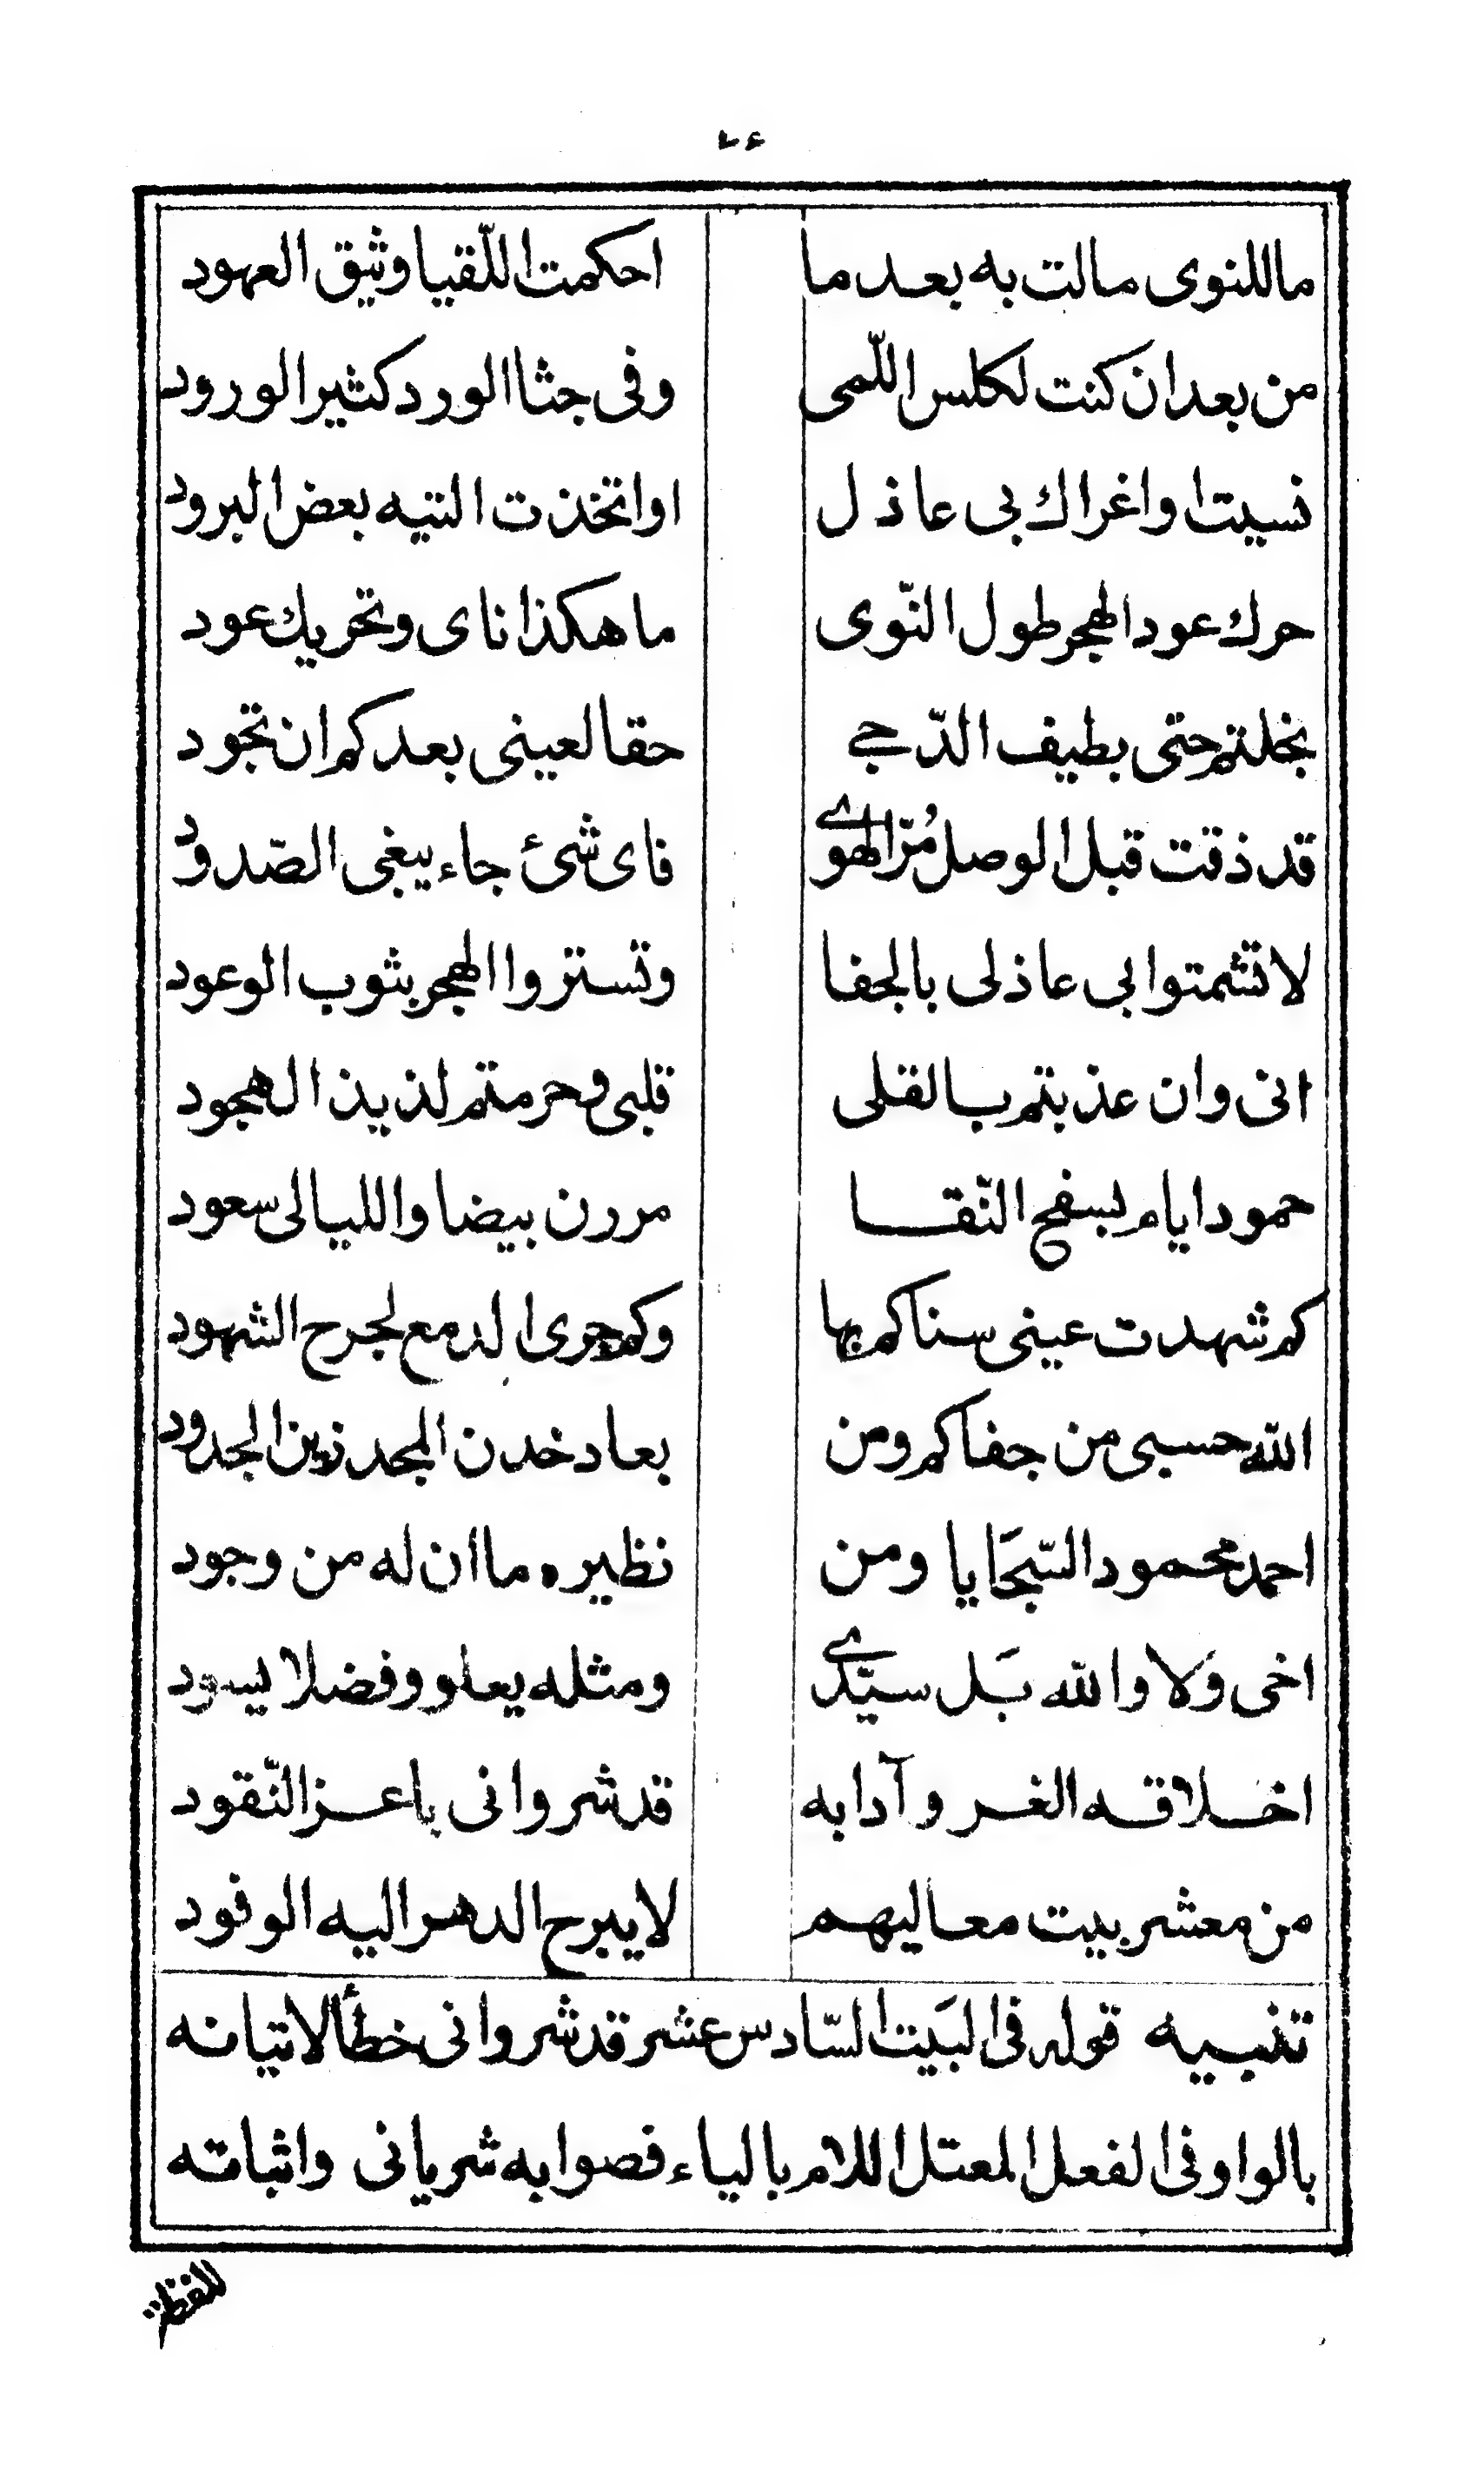 ماللنوى مالت به بعد ما احكمت اللّقيا وثيق العهود
من بعد ان كنت لكلس اللّمى وفى جثا الورد كثير الورود
نسيت او اغراك بى عاذل او اتخذت التيه بعض البرود
حرك عود الهجر طول النّوى ما هكذا ناى وتحريك عود
بخلتم حتى بطيف الدّجے حقا لعينى بعدكم ان تجود
قد ذقت قبل الوصل مُرّ الهوے فاى شئ جاء يبغى الصّدود
لا تشمتوا بى عاذلى بالجفا وتستروا الهجر بثوب الوعود
انى وان عذبتم بالقلى قلبى وحرمتم لذيذ الهجود
حمود ايام بسفح النّقا مررن بيضا والليالى سعود
كم شهدت عينى سناكم بها وكم جرى الدمع لجرح الشهود
الله حسبى من جفاكم ومن بعاد خدن المجد زين الجدود
احمد محمود السّجَايا ومن نظيره ما ان له من وجود
اخى وَلا والله بَل سيّدے ومثله يعلو وفضلا يسود
اخلاقه الغر وآدابه قد شروانى باعز النّقود
من معشر بيت معاليهم لا يبرح الدهر اليه الوفود
تنبيه قوله فى البَيت السّادس عشر قد شروانى خطأ لاتيانه
بالواو فى الفعل المعتل اللام بالياء فصوابه شريانى واثباته
للفظة